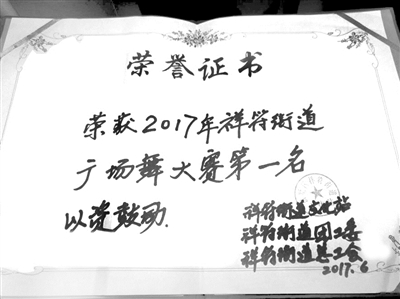 荣誉证书
荣获2017年祥符街道
广场舞大赛第一名
以资鼓励.
祥符街道文化站
祥符街道团工委
祥符街道总工会
2017.6